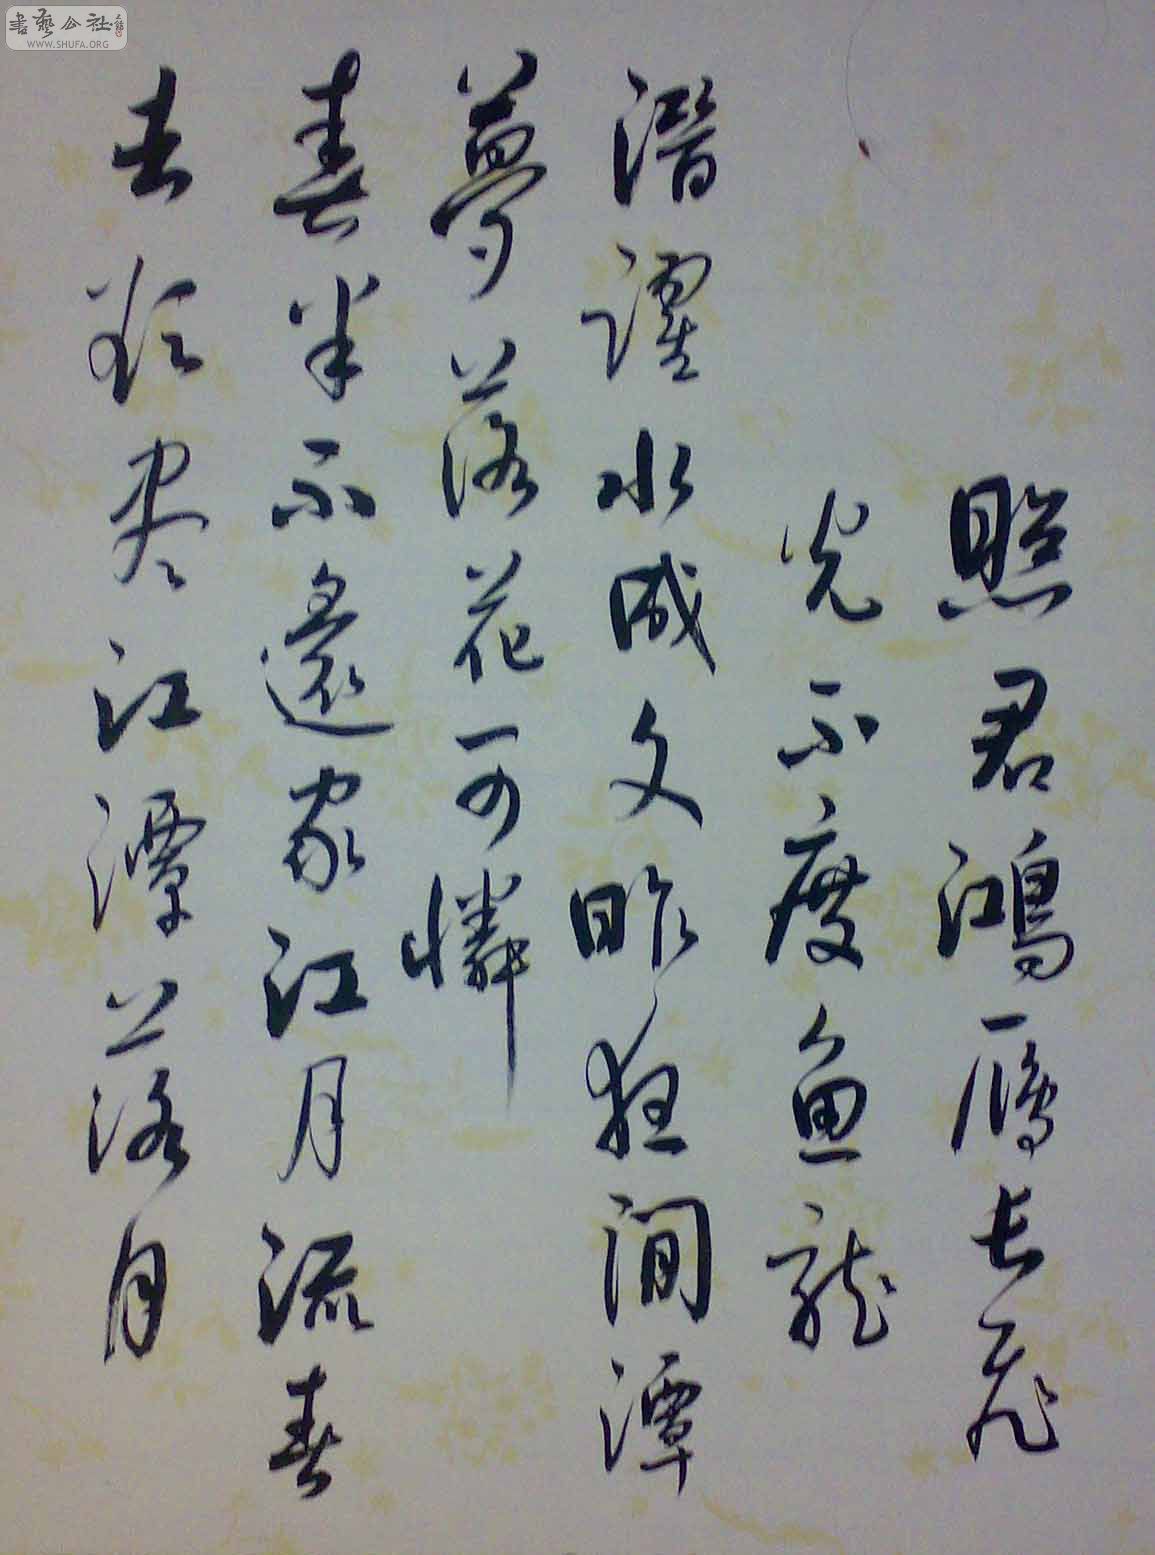 書藝公社
WWW.SHUFA.ORG
照君鴻雁长飛
光不度鱼龍
潛躍水成文昨夜間潭
夢落花可憐
春半不還家江月流春
去欲尽江潭落月